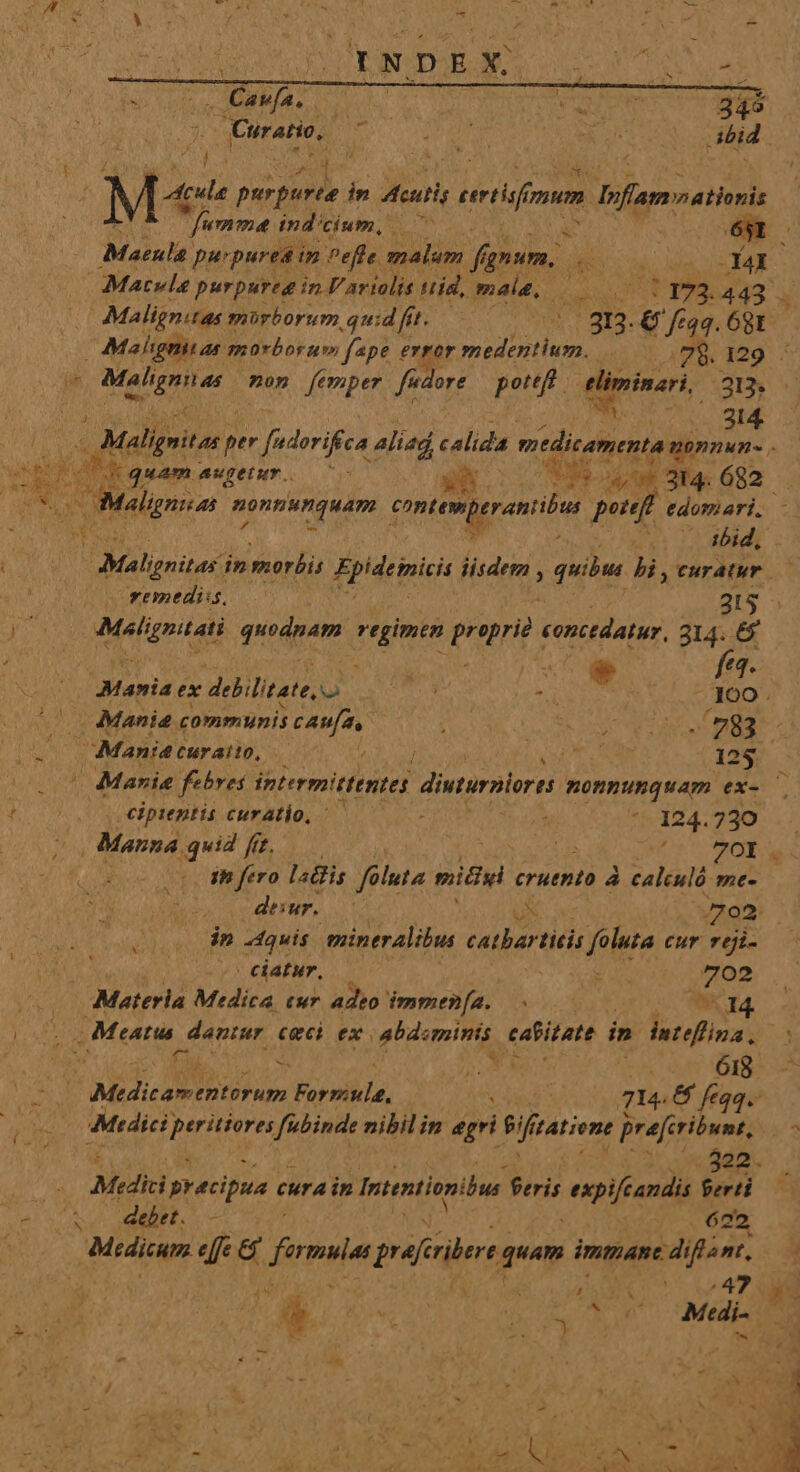 INDEX.
Cauſa, 345
Curatio, ibid
Maculæ purpureæ in Acutis certiſſimum Inflammationis
ſummæ indicium, 651
Maculæ purpureæ in Peſte malum ſignum, 141
Maculæ purpureæ in Variolis itid, malæ, 173. 443
Malignitas morborum quid ſit. 313. & ſeqq. 681
Malignitas morborum ſæpe error medentium. 78. 129
Malignitas non ſemper ſudore poteſt eliminari, 313.
314
Malignitas per ſudorifica aliaq́, calida medicamenta nonnun-
quam augetur. 314. 682
Malignitas nonnunquam contemperantibus poteſt edomari.
ibid,
Malignitas in morbis Epidemicis iisdem, quibus hi, curatur
remediis, 315
Malignitati quodnam regimen propriè concedatur, 314. &
ſeq.
Mania ex debilitate, 100
Maniæ communis cauſa, 783
Maniæ curatio, 125
Maniæ febres intermittentes diuturniores nonnunquam ex-
cipientis curatio, 124. 730
Manna quid ſit. 701
in ſero lactis ſoluta mictui cruento à calculô me-
detur. 702
in Aquis mineralibus catharticis ſoluta cur reji-
ciatur, 702
Materia Medica cur adeo immenſa. 14
Meatus dantur cæci ex abdominis cavitate in inteſtina,
618
Medicamentorum Formulæ, 714. & ſeqq.
Medici peritiores ſubinde nihil in ægri viſitatione præſcribunt,
322.
Medici præcipua cura in Intentionibus veris expiſcandis verti
debet. 622
Medicum eſſe & formulas præſcribere quam immane diſtant,
47
Medi-